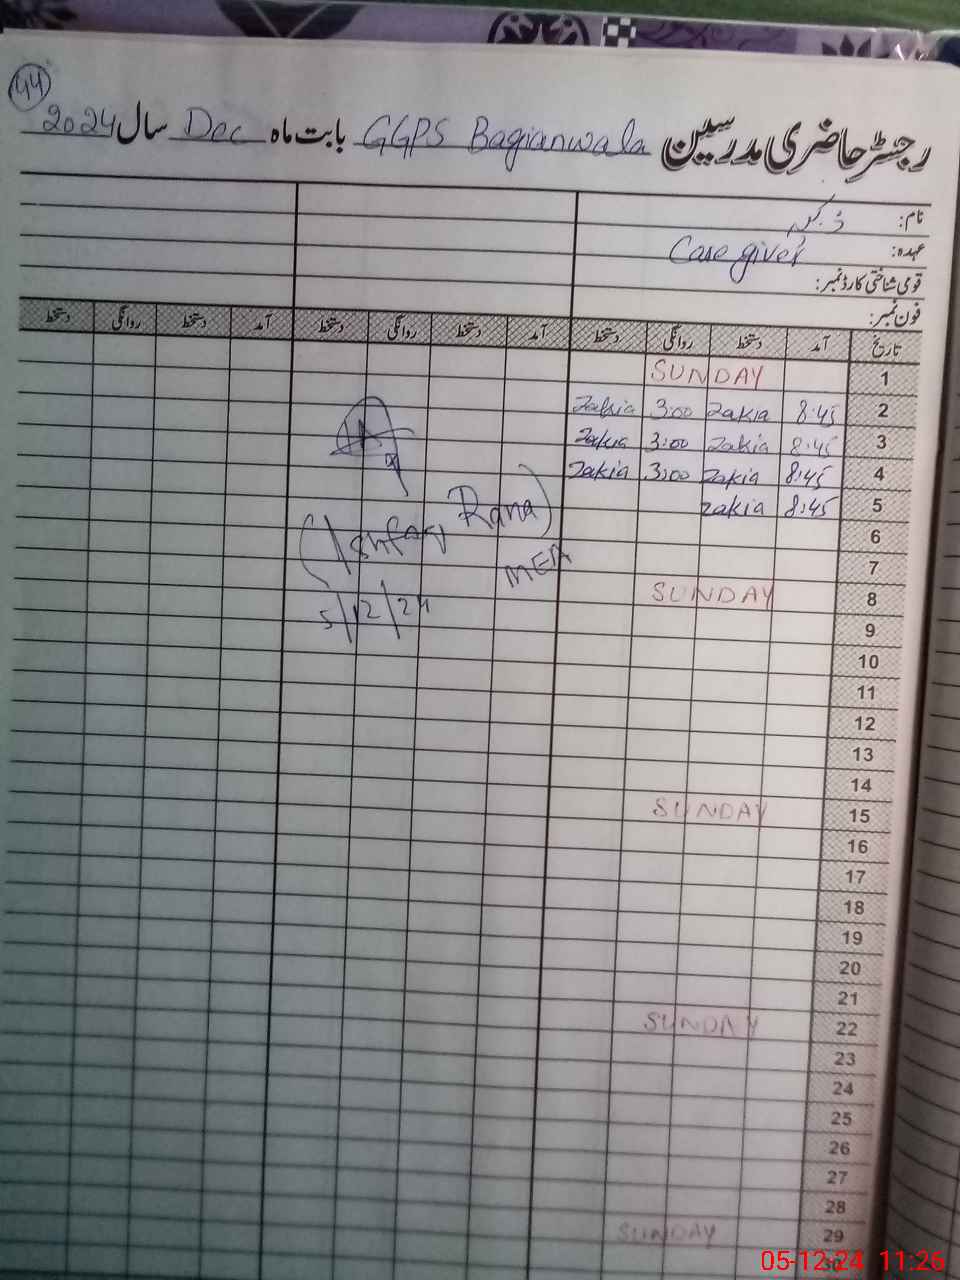 44
رجسٹر حاضری مدرسین GGPS Bagianwala بابت ماہ Dec سال 2024
نام: ذکیہ
عہدہ: Care giver
قومی شناختی کارڈ نمبر:
فون نمبر:
تاریخ آمد دستخط روانگی دستخط آمد دستخط روانگی دستخط آمد دستخط روانگی دستخط
1 SUNDAY
2 8:45 Zakia 3:00 Zakia
3 8:45 Zakia 3:00 Zakia
4 8:45 Zakia 3:00 Zakia
5 8:45 Zakia
6
7
8 SUNDAY
9
10
11
12
13
14
15 SUNDAY
16
17
18
19
20
21
22 SUNDAY
23
24
25
26
27
28
29 SUNDAY
30
(Ashfaq Rana)
MEA
5/12/24
05-12-24 11:26